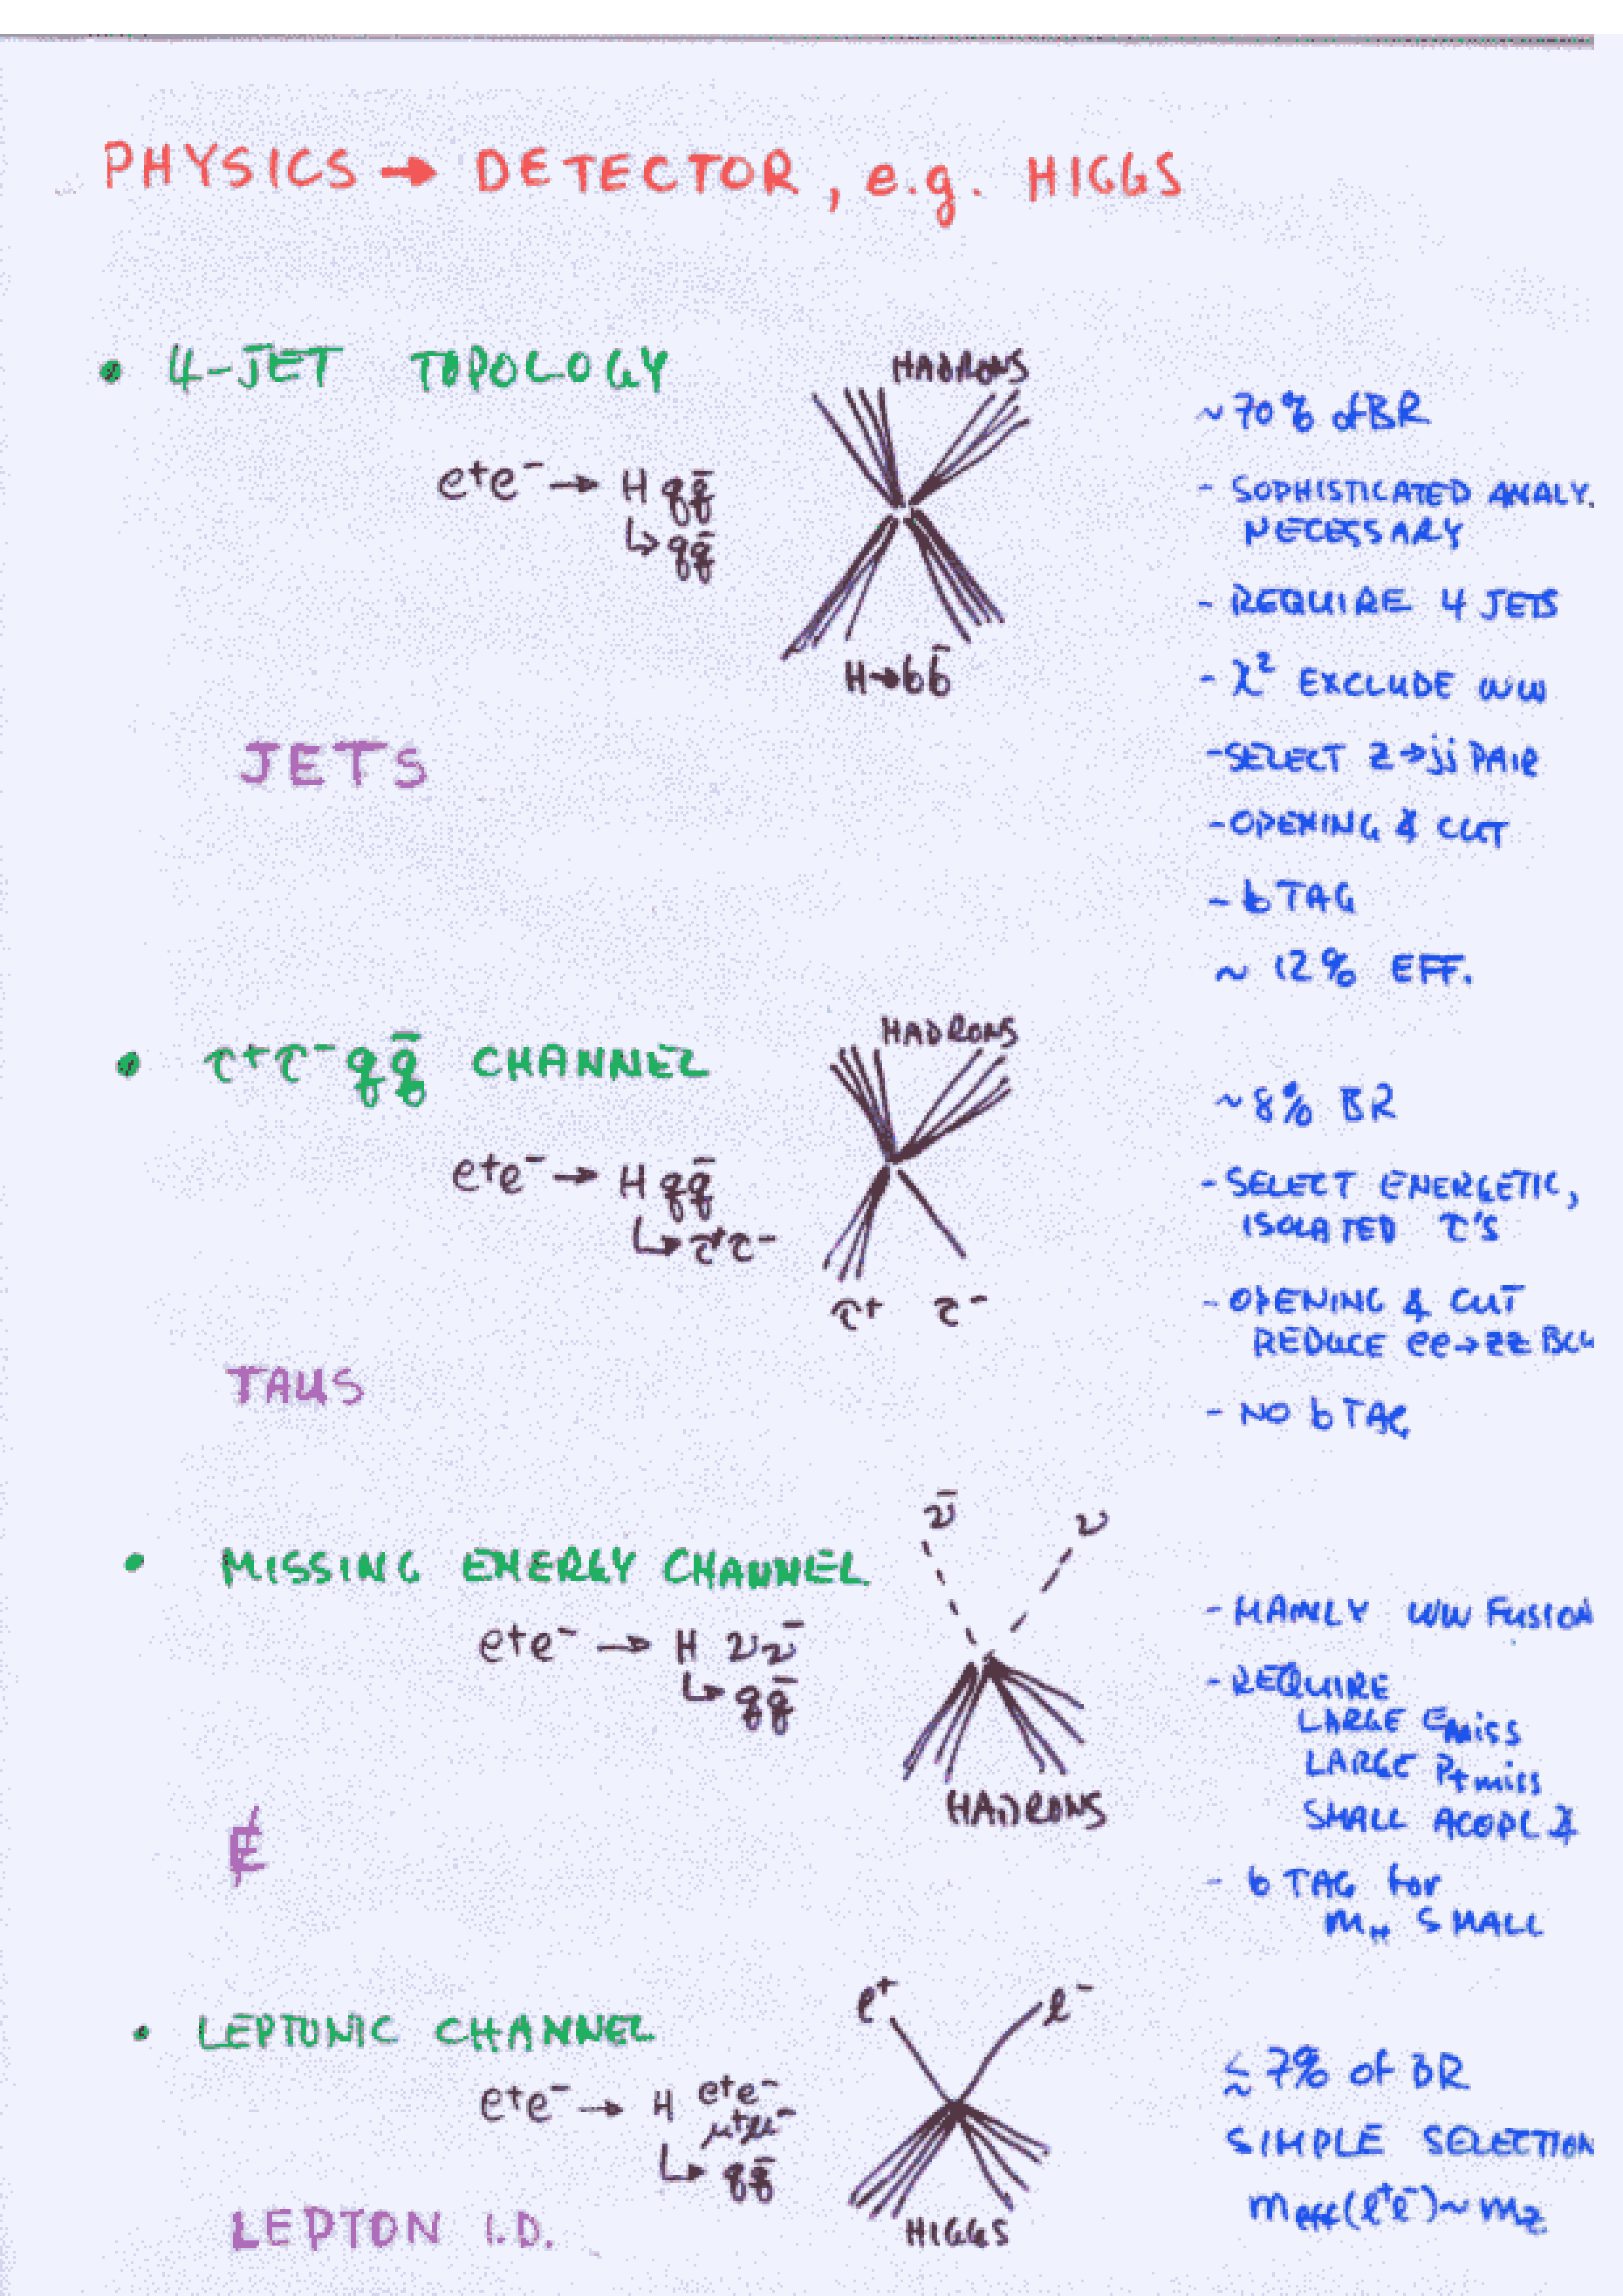 PHYSICS → DETECTOR, e.g. HIGGS
• 4-JET TOPOLOGY
e⁺e⁻ → H qq̄
↳ qq̄
HADRONS
H→bb̄
~70% of BR
- SOPHISTICATED ANALY.
NECESSARY
- REQUIRE 4 JETS
- χ² EXCLUDE WW
- SELECT Z→jj PAIR
- OPENING ∡ CUT
- b TAG
~ 12% EFF.
JETS
• τ⁺τ⁻qq̄ CHANNEL
e⁺e⁻ → H qq̄
↳ τ⁺τ⁻
HADRONS
τ⁺ τ⁻
~8% BR
- SELECT ENERGETIC,
ISOLATED τ'S
- OPENING ∡ CUT
REDUCE ee→ZZ
- NO b TAG
TAUS
• MISSING ENERGY CHANNEL
e⁺e⁻ → H νν̄
↳ qq̄
ν̄ ν
HADRONS
- MAINLY WW FUSION
- REQUIRE
LARGE Emiss
LARGE Pt miss
SMALL ACOPL ∡
- b TAG for
m_H SMALL
E̸
• LEPTONIC CHANNEL
e⁺e⁻ → H e⁺e⁻
μ⁺μ⁻
↳ qq̄
ℓ⁺ ℓ⁻
HIGGS
≲ 7% of BR
SIMPLE SELECTION
m_eff(ℓ⁺ℓ⁻)~m_Z
LEPTON I.D.